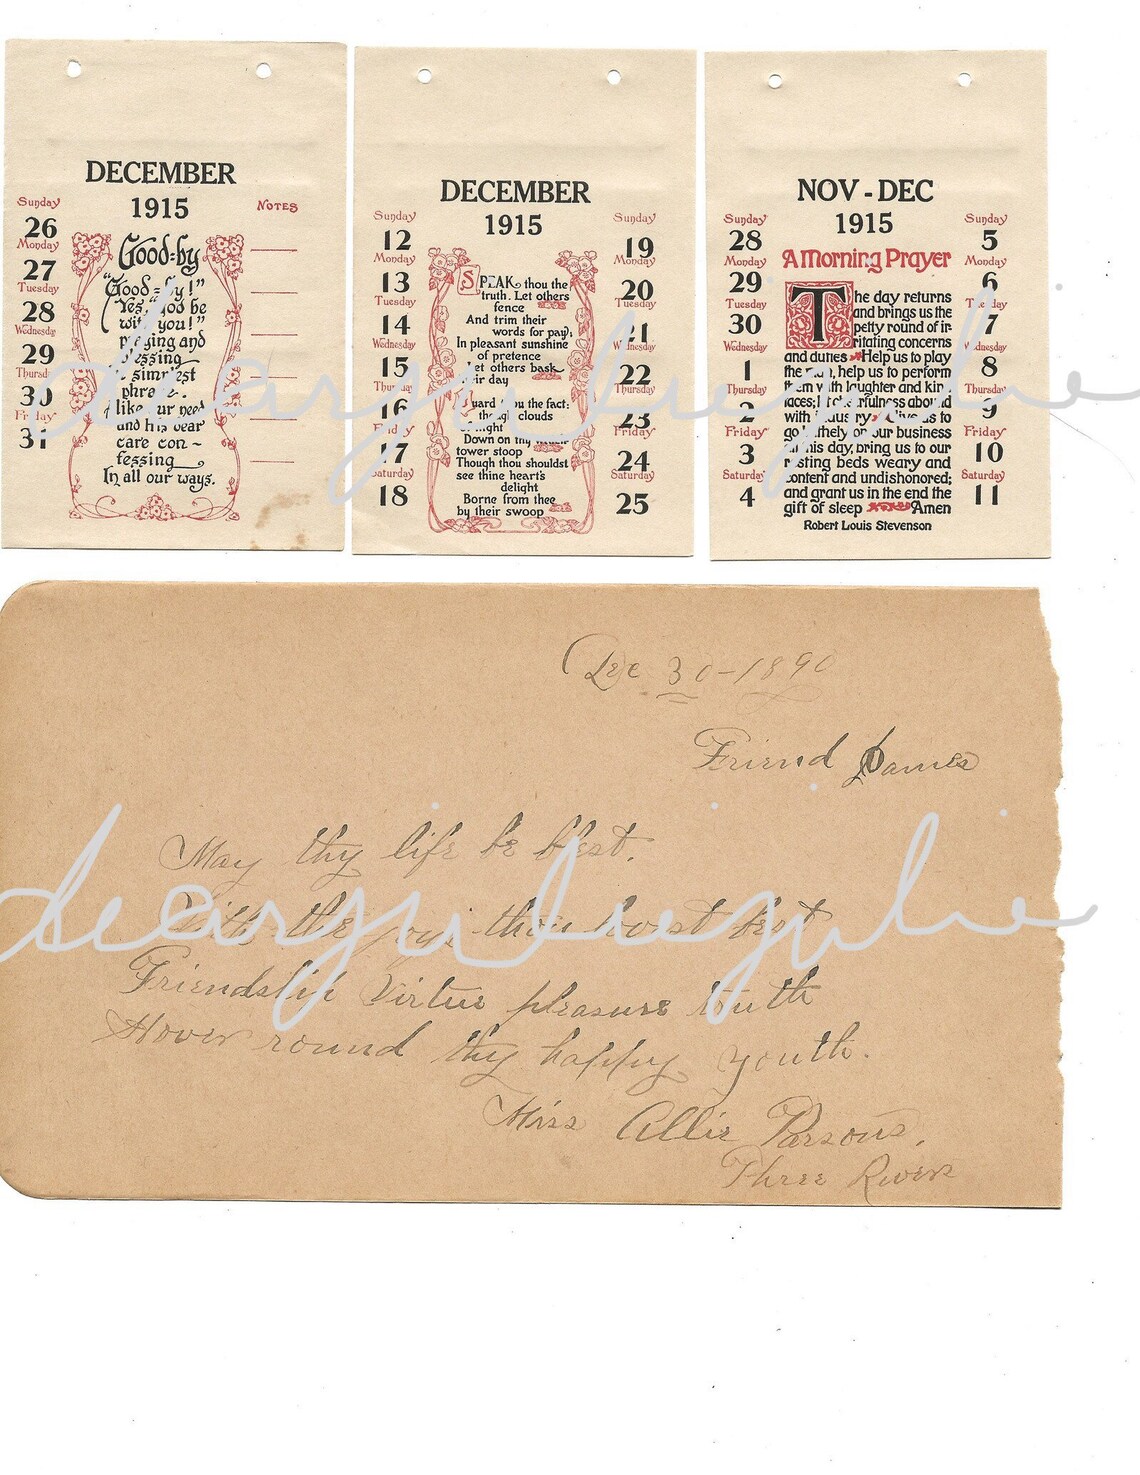 DECEMBER
1915
Sunday
26
Monday
27
Tuesday
28
Wednesday
29
Thursday
30
Friday
31
NOTES
Good-by
"Good-by!"
Yes, "God be
with you!"
praying and
blessing
simplest
phrase.
Alike our need
and his dear
care con-
fessing
In all our ways.
DECEMBER
1915
Sunday
12
Monday
13
Tuesday
14
Wednesday
15
Thursday
16
Friday
17
Saturday
18
SPEAK thou the
truth. Let others
fence
And trim their
words for pay;
In pleasant sunshine
of pretence
Let others bask
their day
Guard thou the fact:
though clouds
of night
Down on thy watch
tower stoop
Though thou shouldst
see thine heart's
delight
Borne from thee
by their swoop
Sunday
19
Monday
20
Tuesday
21
Wednesday
22
Thursday
23
Friday
24
Saturday
25
NOV - DEC
1915
Sunday
28
Monday
29
Tuesday
30
Wednesday
1
Thursday
2
Friday
3
Saturday
4
A Morning Prayer
The day returns
and brings us the
petty round of ir-
ritating concerns
and duties Help us to play
the man, help us to perform
them with laughter and kind
faces; let cheerfulness abound
with industry Give us to
go blithely on our business
all this day, bring us to our
resting beds weary and
content and undishonored;
and grant us in the end the
gift of sleep Amen
Robert Louis Stevenson
Sunday
5
Monday
6
Tuesday
7
Wednesday
8
Thursday
9
Friday
10
Saturday
11
Dec 30-1890
Friend James
May thy life be blest.
With the joys thou lovest best
Friendship Virtue pleasure truth
Hover round thy happy youth.
Miss Allie Parsons,
Three Rivers
dearjuliejulie
dearjuliejulie